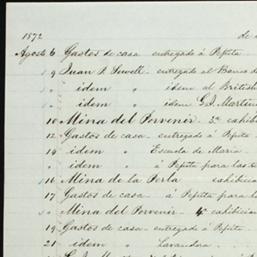 1872 de a
Agosto 6 Gastos de casa entregado á Pepita
" 9 Juan S. Sewell. entregado al Banco de
" " idem " idem al British
" " idem " idem G. J. Martin
" 10 Mina del Porvenir. 3ª exhibi
" 12 Gastos de casa entregado á Pepita
" 14 idem " Escuela de Maria
" " idem " á Pepita para los
" 16 Mina de la Perla exhibicion
" 17 Gastos de casa " á Pepita para lo
" " Mina del Porvenir. 4ª exhibicion
" 19 Gastos de casa entregado á Pepita
" 21 idem " Lavandera